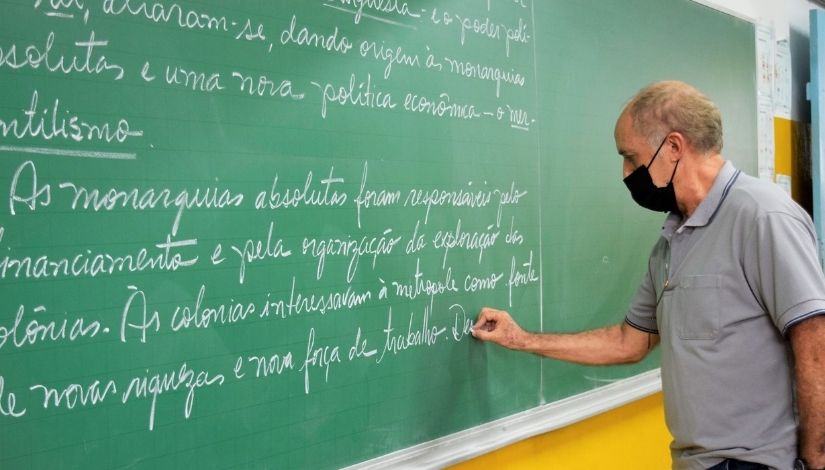 aliaram-se, dando origem às monarquias
guesia - e o poder polí-
solutas e uma nova política econômica - o mer-
ntilismo.
As monarquias absolutas foram responsáveis pelo
inanciamento e pela organização da exploração das
olônias. Às colonias interessavam à metrópole como fonte
de novas riquezas e nova força de trabalho. Du